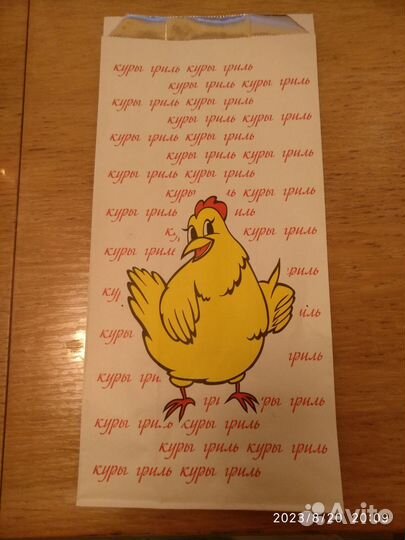 куры гриль куры гриль
куры гриль куры гриль
куры гриль куры гриль
куры гриль куры гриль
куры гриль куры гриль
куры гриль куры гриль
куры гриль куры гриль
куры ль куры гриль
куры гриль иль
к куры гриль
куры гриль
риль
кур
иль
куры
гриль
куры гри
гри ры гриль
куры гриль куры гриль
куры гриль куры гриль
куры гриль куры гриль
2023/8/20 20:09
Avito